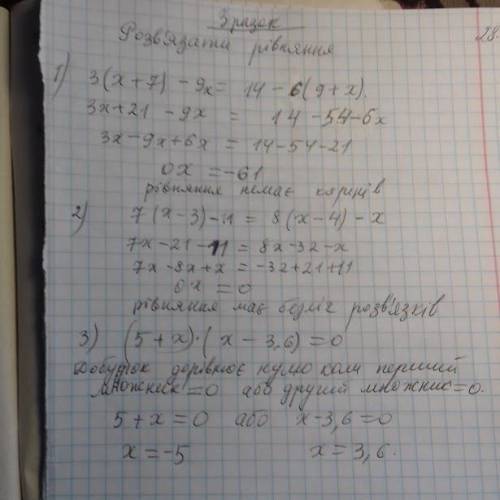 Зразок
Розв'язати рівняння 28
1) 3(x+7) - 9x = 14 - 6(9+x).
3x+21 - 9x = 14 - 54 - 6x
3x - 9x + 6x = 14 - 54 - 21
0x = -61
рівняння немає коренів
2) 7(x-3) - 11 = 8(x-4) - x
7x - 21 - 11 = 8x - 32 - x
7x - 8x + x = -32 + 21 + 11
0x = 0
рівняння має безліч розв'язків
3) (5+x)·(x-3,6) = 0
Добуток дорівнює нулю коли перший
множник = 0 або другий множник = 0.
5+x = 0 або x-3,6 = 0
x = -5 x = 3,6.